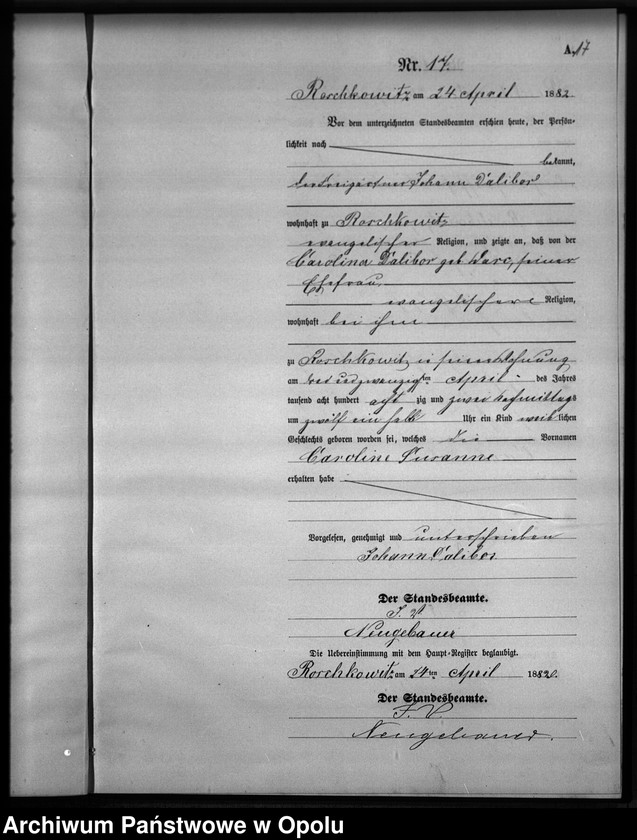 A. 17
Nr. 17.
Roschkowitz am 24 April 1882
Vor dem unterzeichneten Standesbeamten erschien heute, der Persön-
lichkeit nach
bekannt,
der Freigärtner Johann Dalibor
wohnhaft zu Roschkowitz
evangelischer Religion, und zeigte an, daß von der
Carolina Dalibor geb. seiner
Ehefrau
evangelischer Religion,
wohnhaft bei ihm
zu Roschkowitz in seiner Wohnung
am drei und zwanzigsten April des Jahres
tausend acht hundert acht zig und zwei Nachmittags
um zwölf ein halb Uhr ein Kind weiblichen
Geschlechts geboren worden sei, welches die Vornamen
Caroline Susanne
erhalten habe
Vorgelesen, genehmigt und unterschrieben
Johann Dalibor
Der Standesbeamte.
I. V.
Neugebauer
Die Uebereinstimmung mit dem Haupt-Register beglaubigt.
Roschkowitz am 24ten April 1882.
Der Standesbeamte.
I. V.
Neugebauer.
Archiwum Państwowe w Opolu